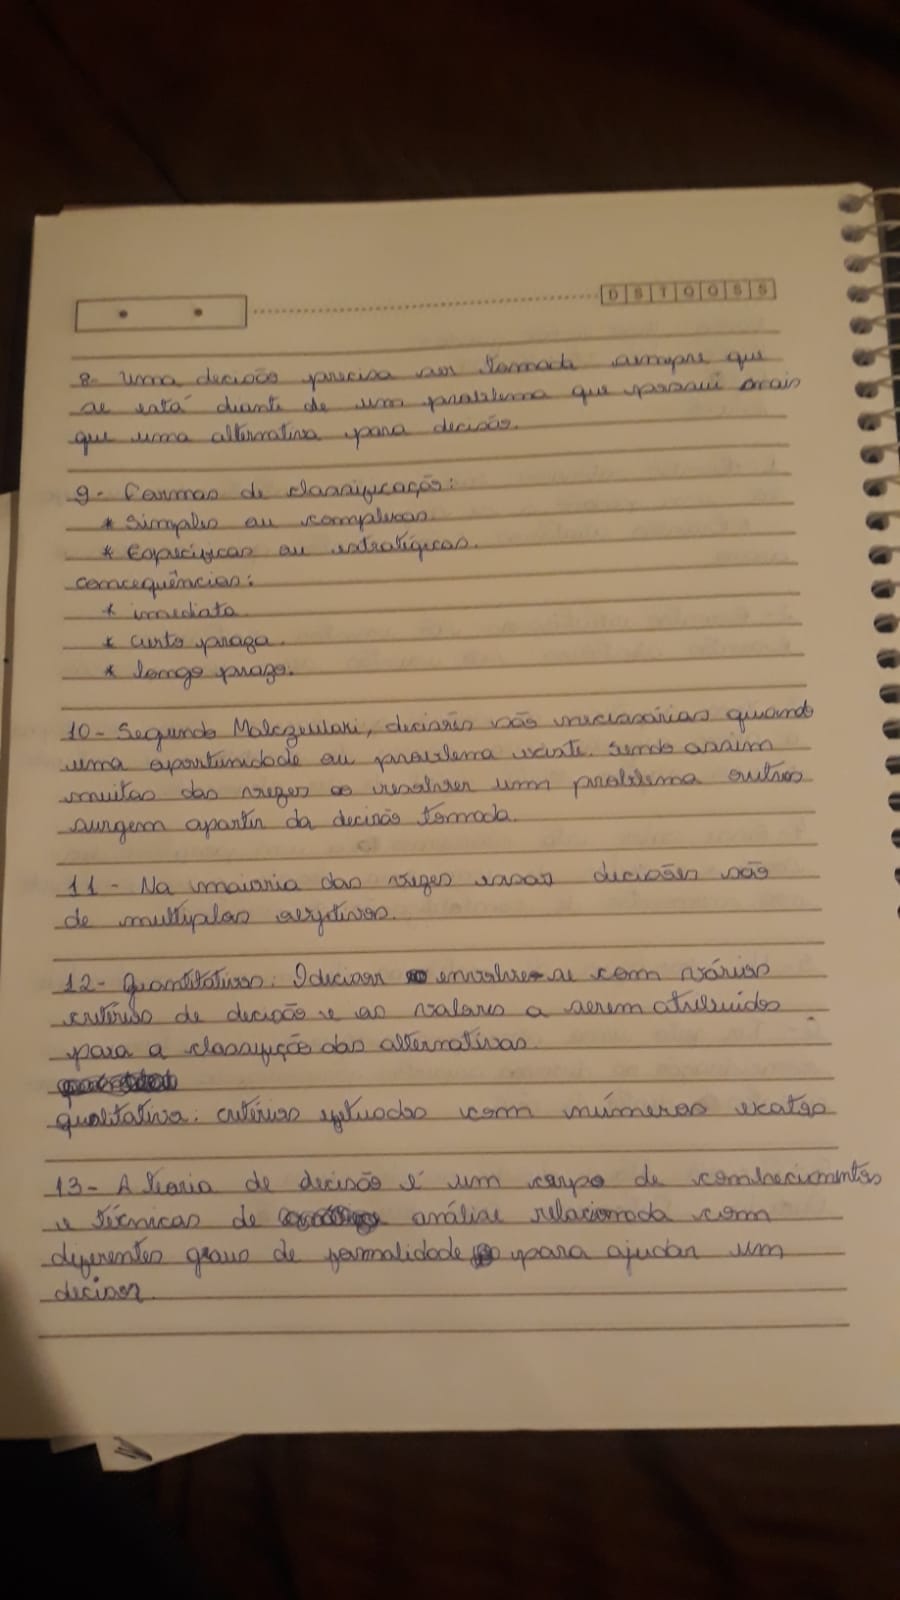 D S T Q Q S S
8- Uma decisão precisa ser tomada sempre que
se está diante de um problema que possui mais
que uma alternativa para decisão.
9- Formas de classificação:
* Simples ou complexas
* Especificas ou estratégicas.
comcequências:
* imediata
* curto prazo.
* longo prazo.
10- Segundo Malczewski, decisões são necessárias quando
uma oportunidade ou problema existe. Sendo assim
muitas das vezes ao resolver um problema outros
surgem apartir da decisão tomada.
11- Na maioria das vezes essas decisões são
de multiplos objetivos.
12- Quantitativos: O decisor envolve-se com vários
critérios de decisão e os valores a serem atribuidos
para a das alternativas
qualitativa: critérios com números exatos
13- A teoria de decisão é um corpo de conhecimentos
e técnicas de análise relacionada com
diferentes graus de formalidade para ajudar um
decisor.